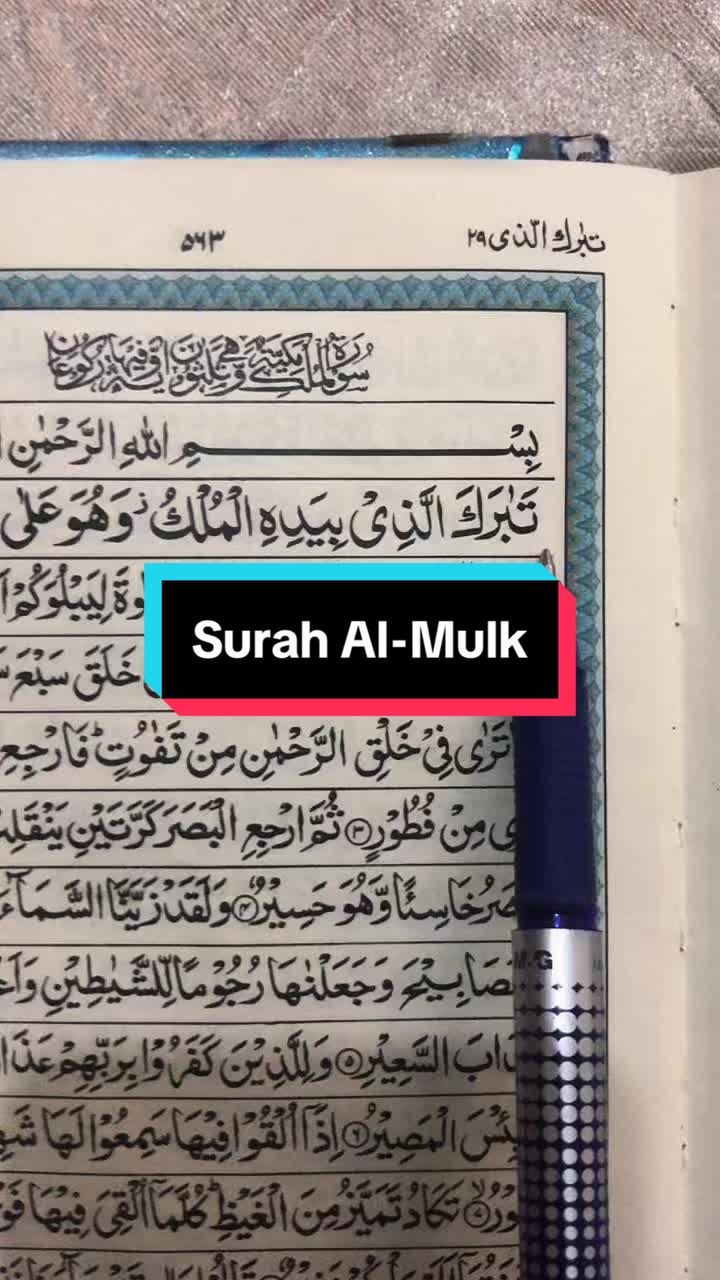 تبٰرك الّذی ٢٩
۵۶۳
سُوْرَةُ الْمُلْكِ مَكِّيَّةٌ وَّهِيَ ثَلٰثُوْنَ اٰيَةً وَّفِيْهَا رُكُوْعَانِ
بِسْمِ اللهِ الرَّحْمٰنِ
تَبٰرَكَ الَّذِیْ بِیَدِهِ الْمُلْكُ ز وَهُوَ عَلٰی
لِیَبْلُوَكُمْ
Surah Al-Mulk
خَلَقَ سَبْعَ
تَرٰی فِیْ خَلْقِ الرَّحْمٰنِ مِنْ تَفٰوُتٍ ؕ فَارْجِعِ
مِنْ فُطُوْرٍ ٣ ثُمَّ ارْجِعِ الْبَصَرَ كَرَّتَیْنِ یَنْقَلِبْ
خَاسِئًا وَّهُوَ حَسِیْرٌ ٤ وَلَقَدْ زَیَّنَّا السَّمَآءَ
وَجَعَلْنٰهَا رُجُوْمًا لِّلشَّیٰطِیْنِ
السَّعِیْرِ ٥ وَلِلَّذِیْنَ كَفَرُوْا بِرَبِّهِمْ
الْمَصِیْرُ ٦ اِذَاۤ اُلْقُوْا فِیْهَا سَمِعُوْا لَهَا
تَكَادُ تَمَیَّزُ مِنَ الْغَیْظِ ؕ كُلَّمَاۤ اُلْقِیَ فِیْهَا
M&G